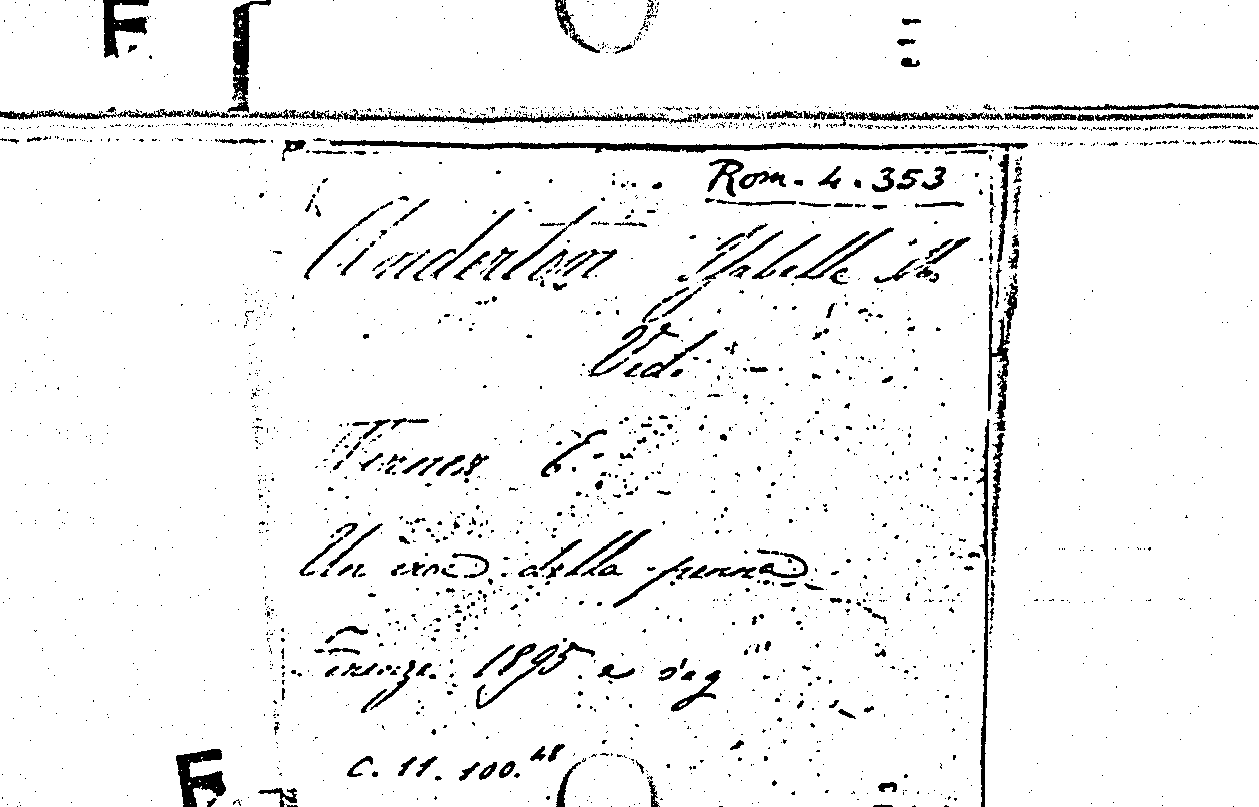 Rom. 4. 353
Anderton Isabelle M.
Ved.
Werner E.
Un eroe della penna
Firenze 1895 e seg
C. 11. 100.48